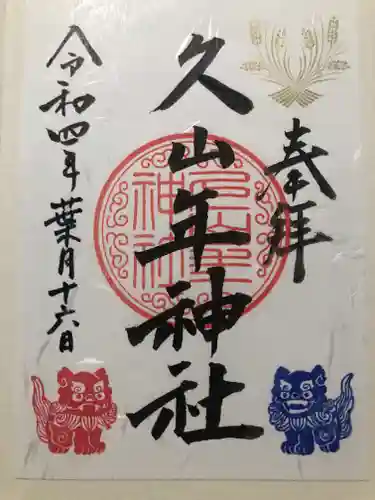 奉拝
久山年神社
令和四年葉月十六日
久山年
神社